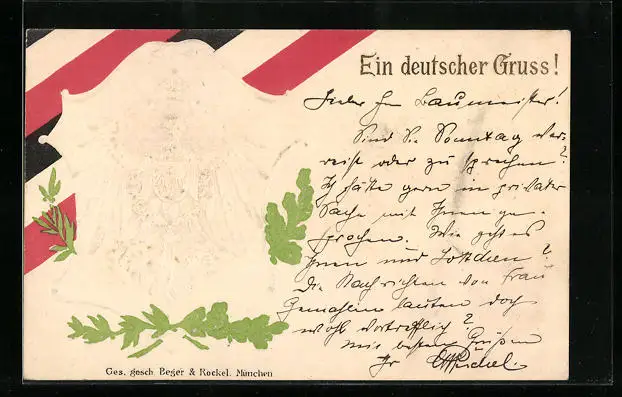 Ein deutscher Gruss!
Lieber H Baumeister!
Sind Sie Sonntag ver-
reist oder zu sprechen?
Ich hätte gern in privater
Sache mit Ihnen ge-
sprochen. Wie geht es
Ihnen und Lottchen?
Die Nachrichten von Frau
Gemahlin lauten doch
wohl vortrefflich?
Mit besten Grüßen
Ihr
Ges. gesch. Beger & Röckel. München